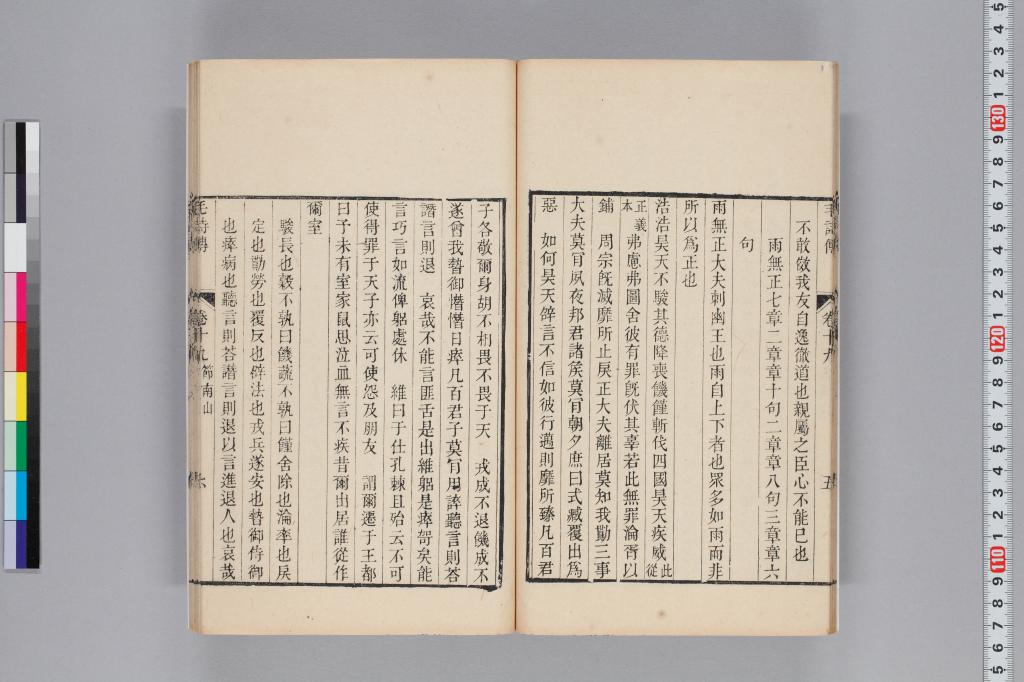 毛詩傳
卷十九
五
不敢傚我友自逸徹道也親屬之臣心不能已也
雨無正七章二章章十句二章章八句三章章六
句
雨無正大夫刺幽王也雨自上下者也眾多如雨而非
所以爲正也
浩浩昊天不駿其德降喪饑饉斬伐四國昊天疾威此從
正義本弗慮弗圖舍彼有罪旣伏其辜若此無罪淪胥以
鋪 周宗旣滅靡所止戾正大夫離居莫知我勩三事
大夫莫肎夙夜邦君諸矦莫肎朝夕庶曰式臧覆出爲
惡 如何昊天辟言不信如彼行邁則靡所臻凡百君
子各敬爾身胡不相畏不畏于天 戎成不退饑成不
遂曾我暬御憯憯日瘁凡百君子莫肎用誶聽言則荅
譖言則退 哀哉不能言匪舌是出維躳是瘁哿矣能
言巧言如流俾躳處休 維曰于仕孔棘且殆云不可
使得罪于天子亦云可使怨及朋友 謂爾遷于王都
曰予未有室家鼠思泣血無言不疾昔爾出居誰從作
爾室
駿長也穀不孰曰饑蔬不孰曰饉舍除也淪率也戾
定也勩勞也覆反也辟法也戎兵遂安也暬御侍御
也瘁病也聽言則荅譖言則退以言進退人也哀哉
毛詩傳
卷十九
節南山
六
130
120
110